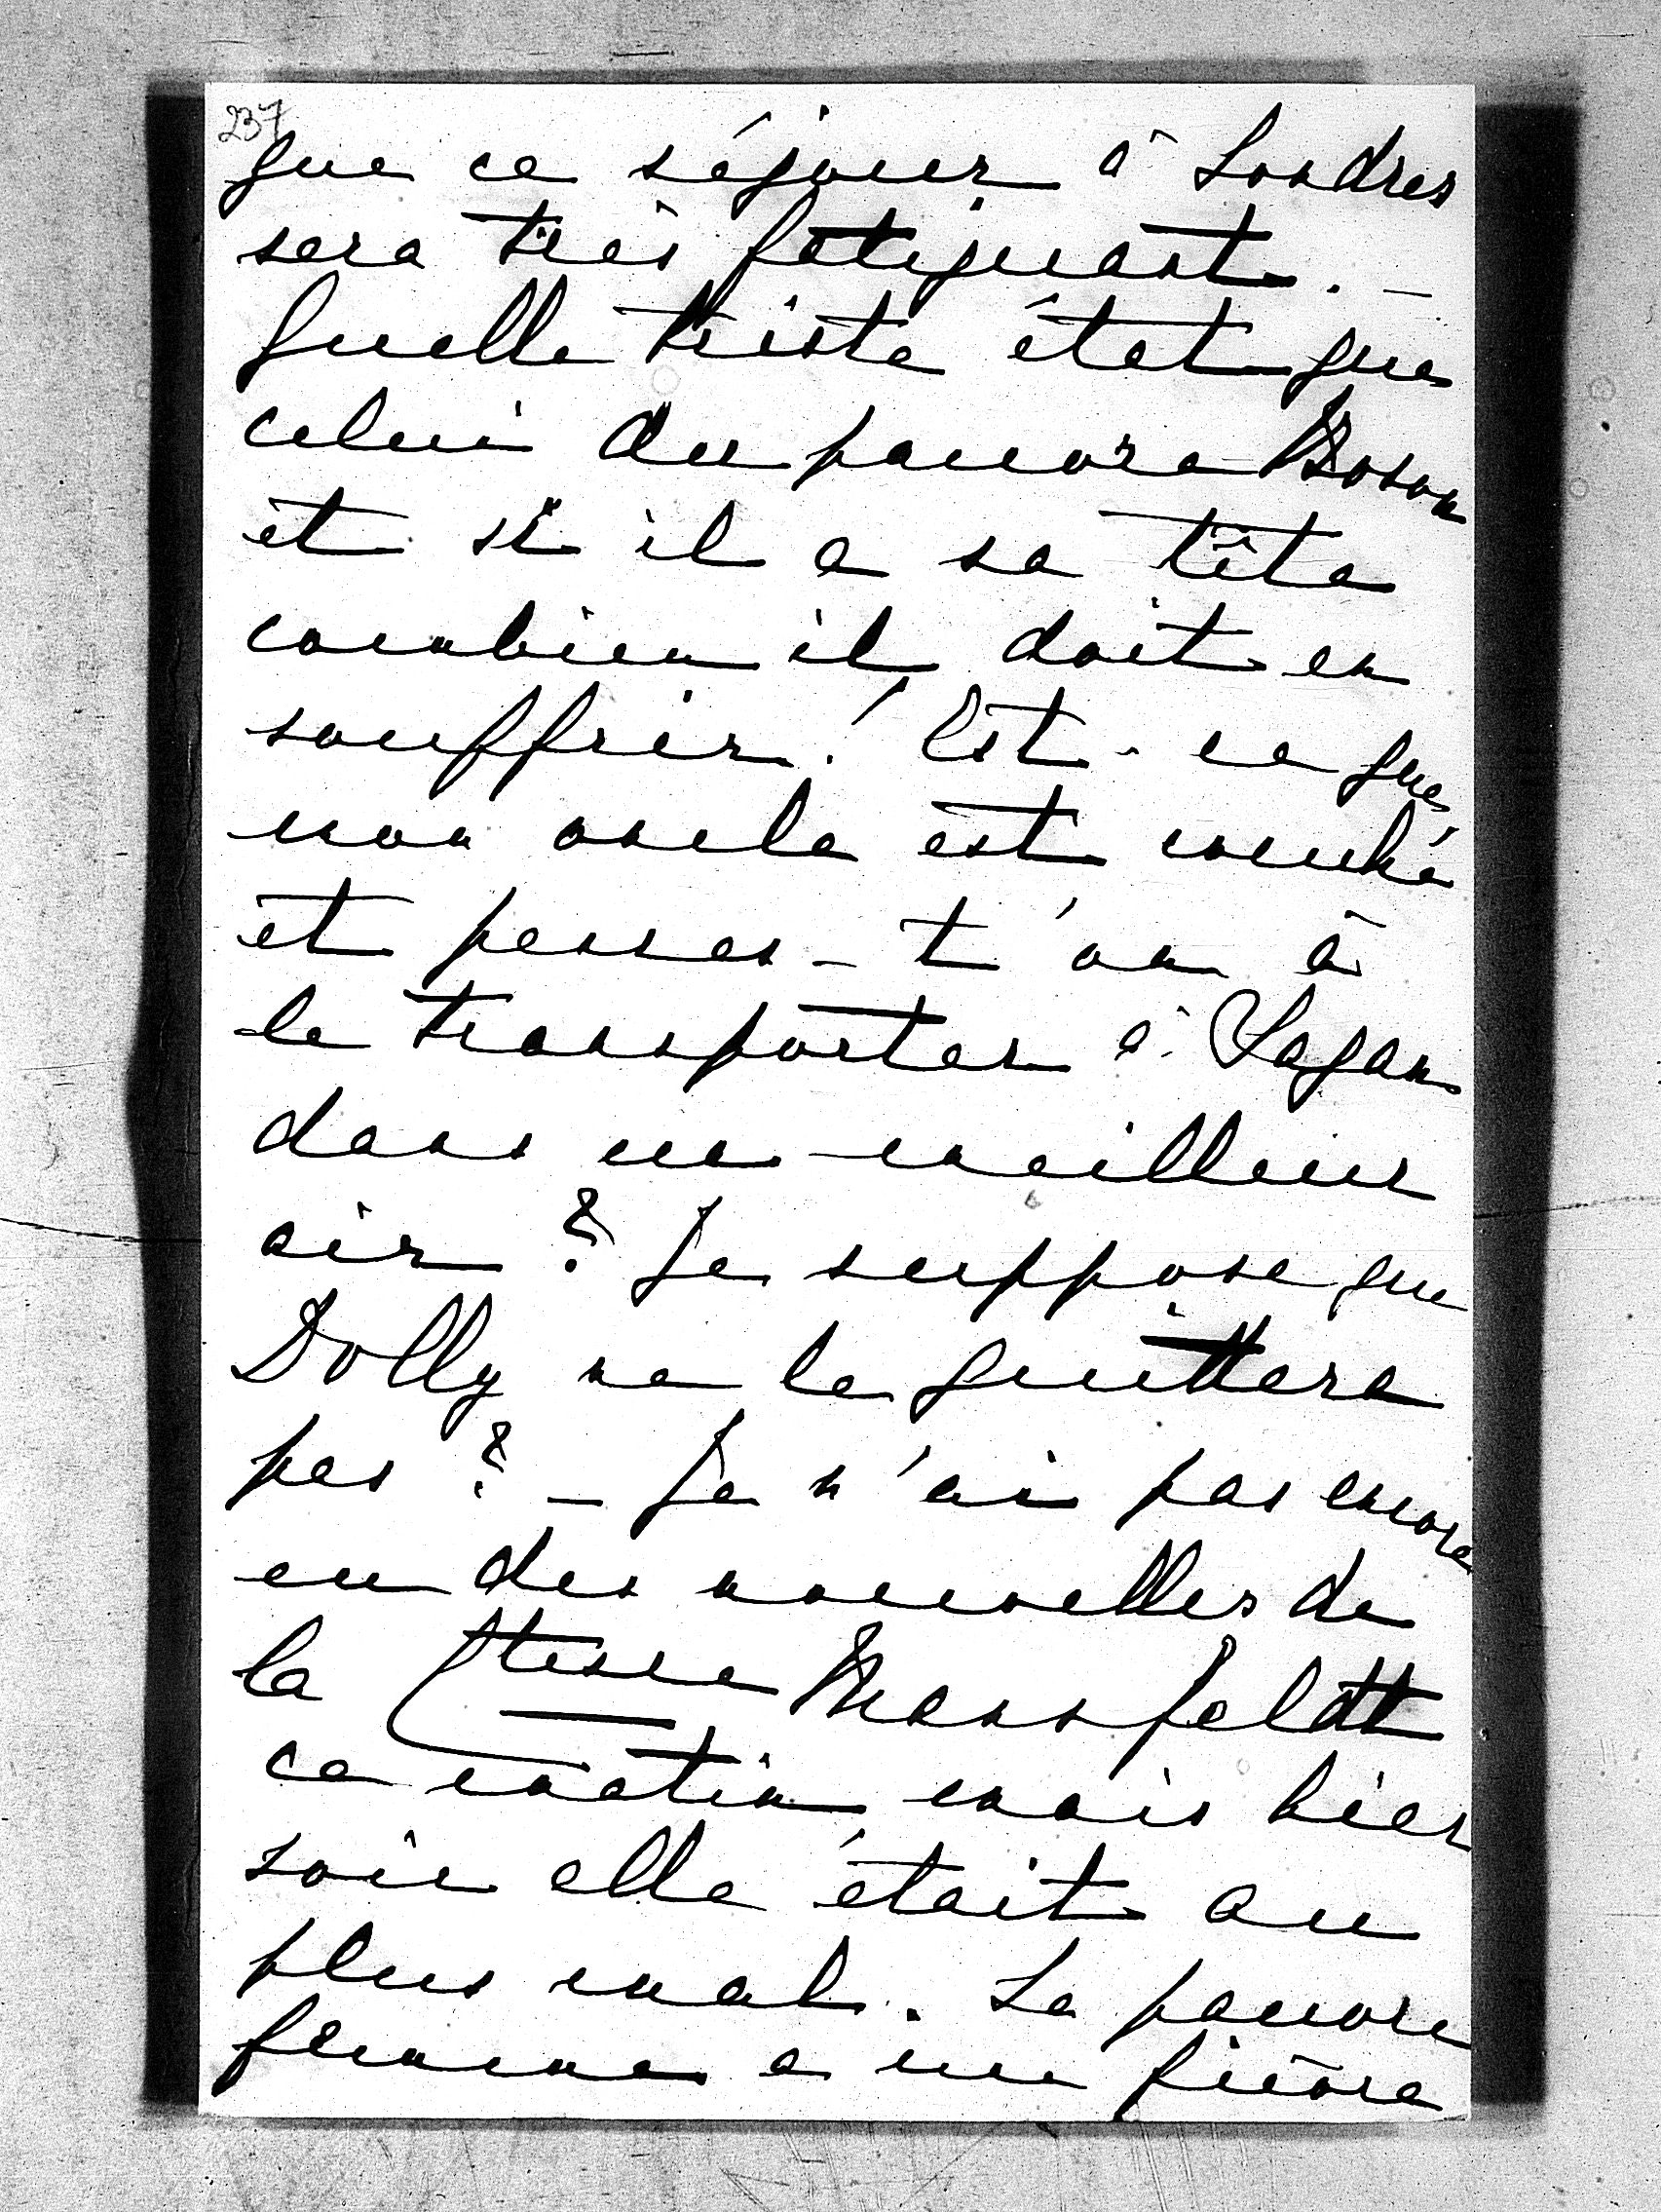 237
que ce séjour à Londres
sera très fatiguant. –
Quelle triste état que
celui du pauvre Boson
et si il a sa tête
combien il doit en
souffrir ! Est-ce que
mon oncle est couché
et penses-t'on à
le transporter à Sagan
dans un meilleur
air ? Je suppose que
Dolly ne le quittera
pas ? – Je n'ai pas encore
eu des nouvelles de
la Ctesse Mansfeldt
ce matin, mais hier
soir elle était au
plus mal. La pauvre
femme a une fièvre